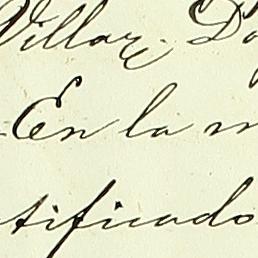 Villar. Do
En la m
tificado